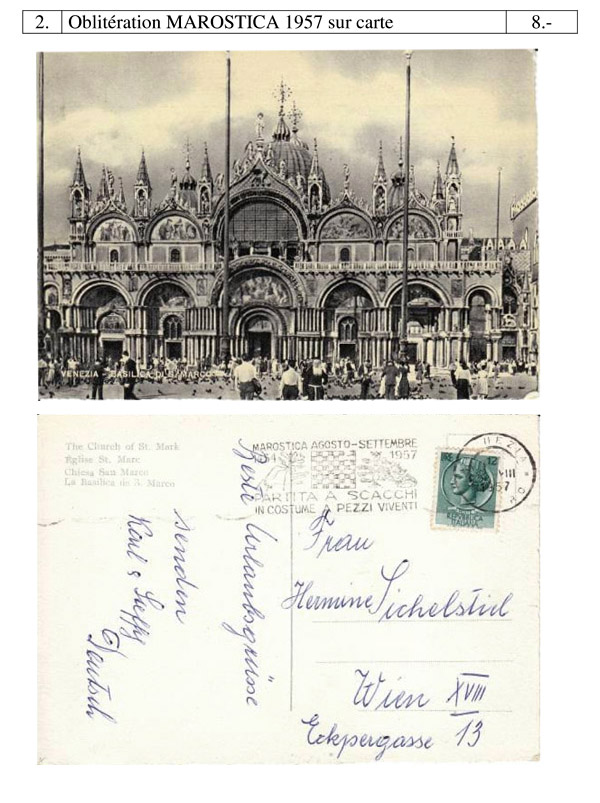 2. Oblitération MAROSTICA 1957 sur carte 8.-
VENEZIA - BASILICA DI S. MARCO
The Church of St. Mark
Eglise St. Marc
Chiesa San Marco
La Basilica de S. Marco
MAROSTICA AGOSTO-SETTEMBRE
1957
PARTITA A SCACCHI
IN COSTUME A PEZZI VIVENTI
12
REPUBBLICA
ITALIANA
Beste Urlaubsgrüsse
senden
Karl & Steffy
Frau
Hermine
Wien XVIII
Eckpergasse 13